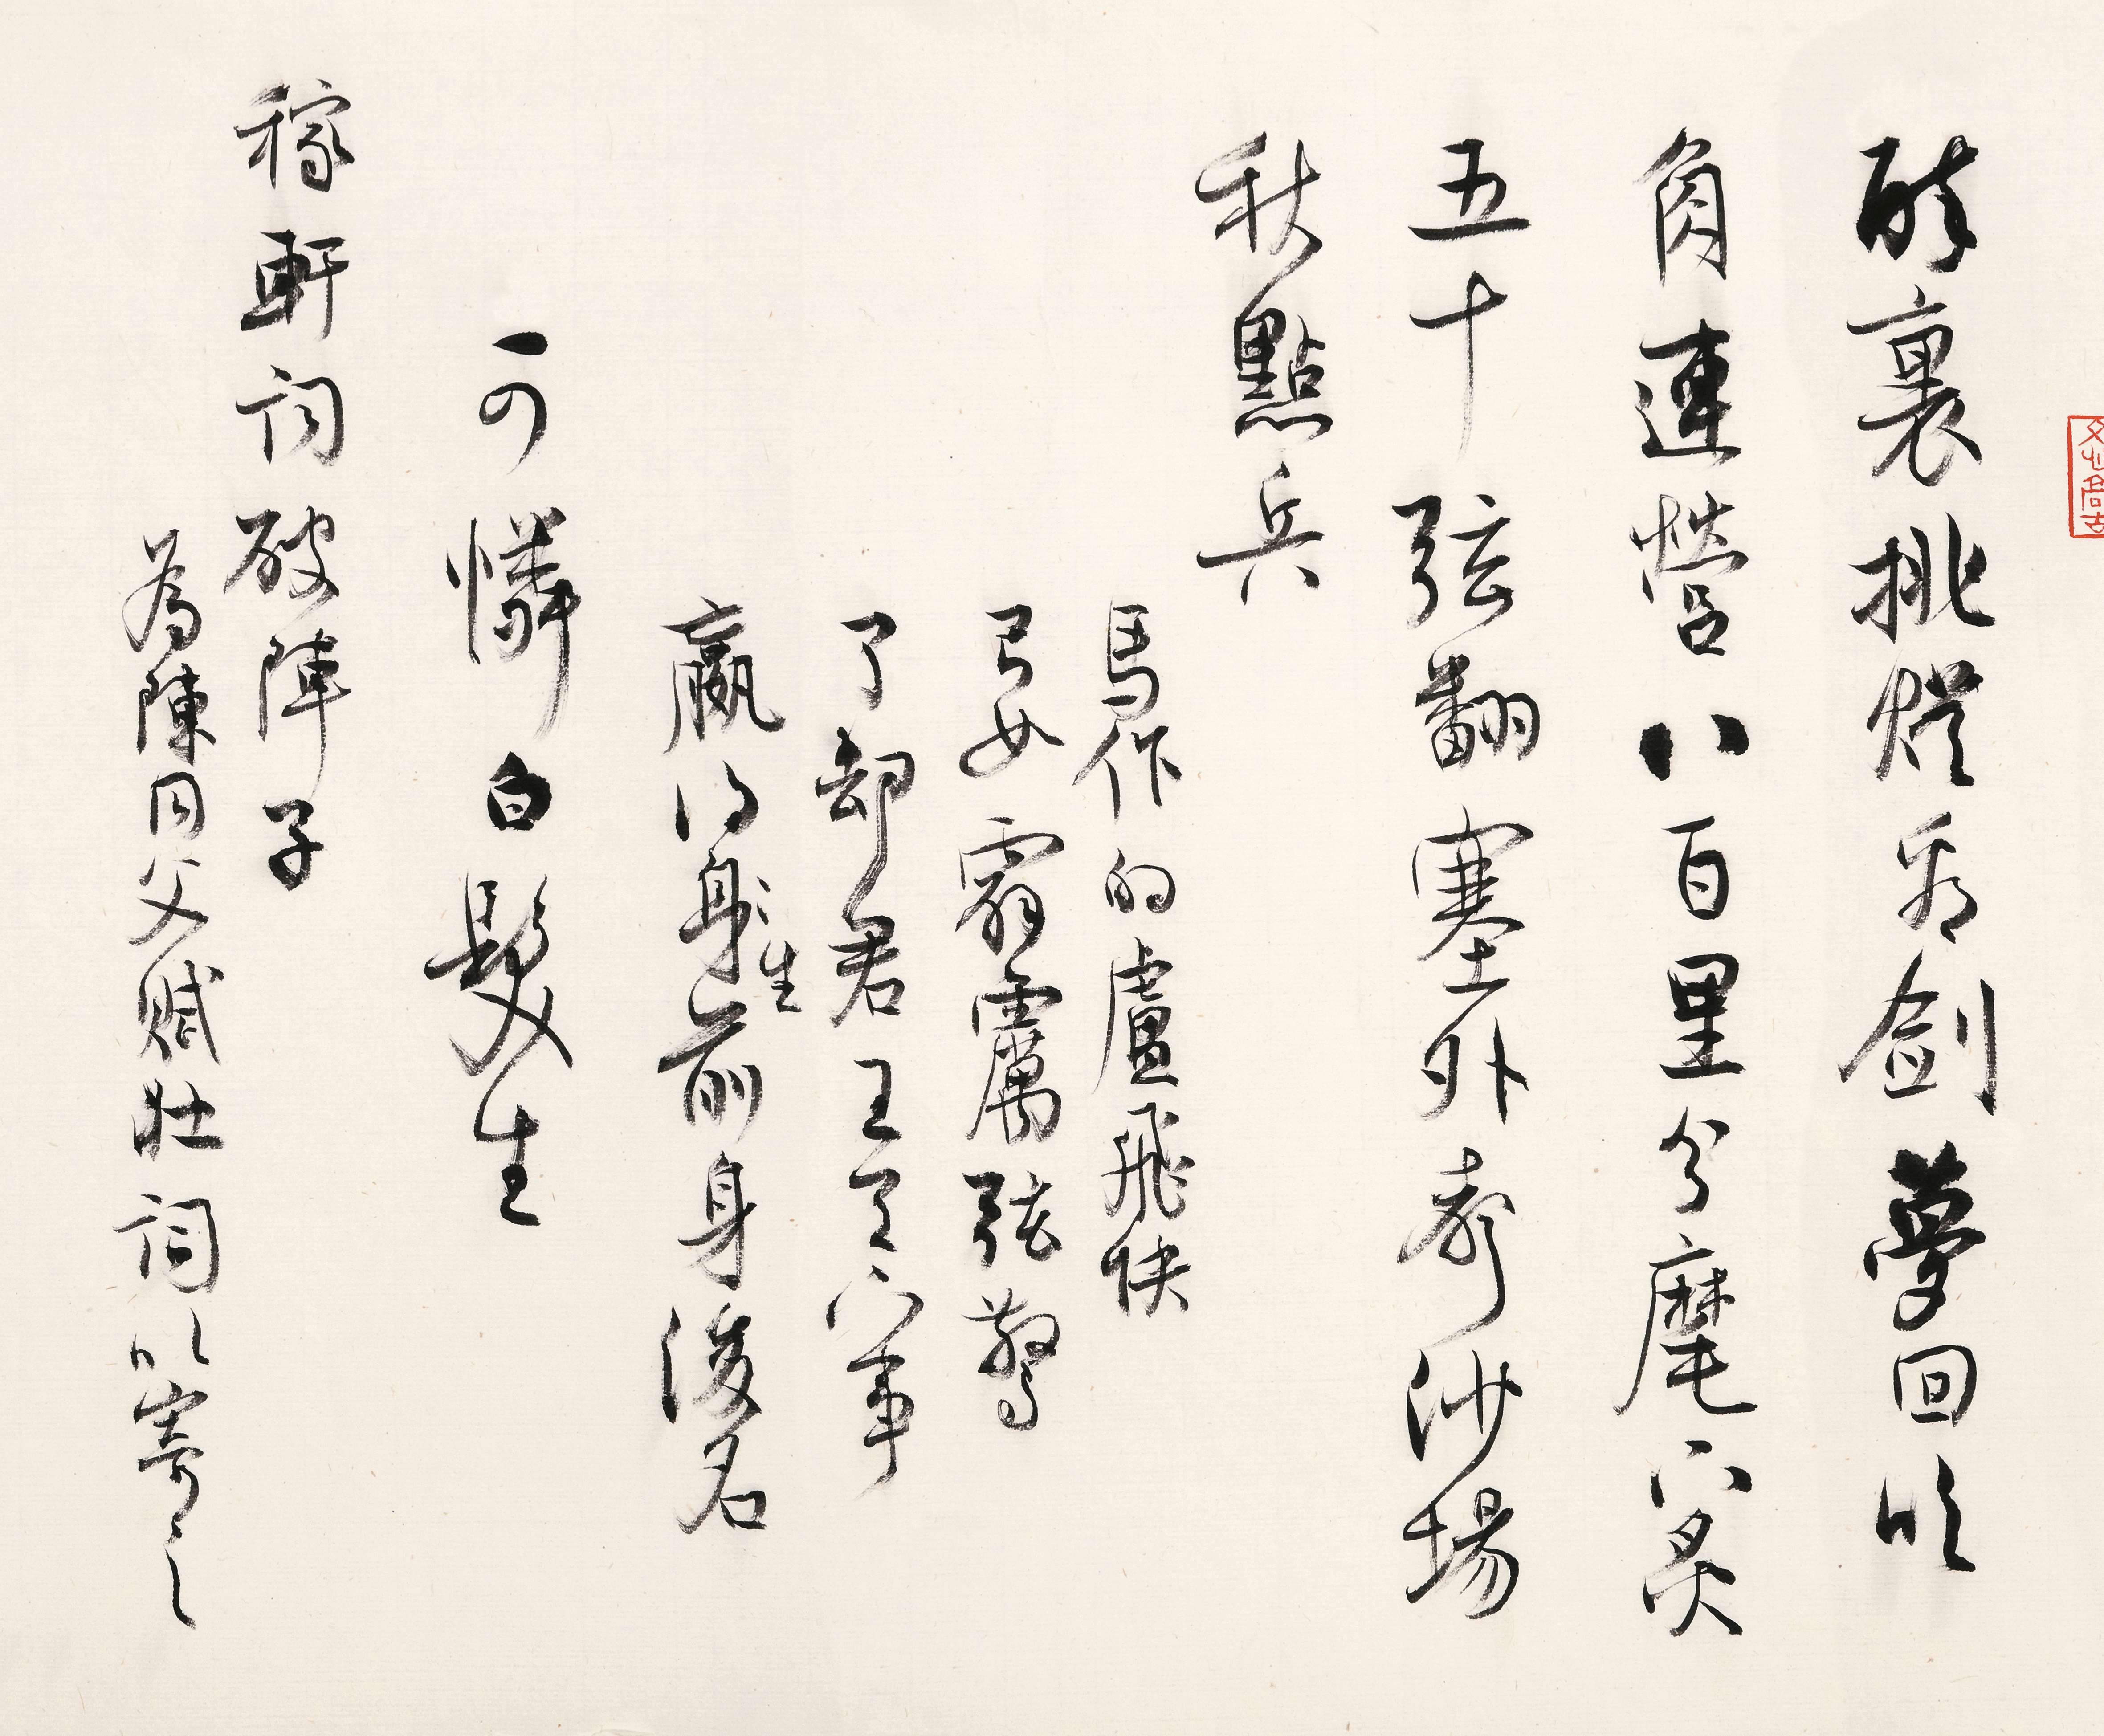 醉裏挑燈看劍夢回吹
角連營八百里分麾下炙
五十弦翻塞外聲沙場
秋點兵
馬作的盧飛快
弓如霹靂弦驚
了却君王天下事
贏得身生前身後名
可憐白髮生
稼軒詞破陣子
為陳同父賦壯詞以寄之